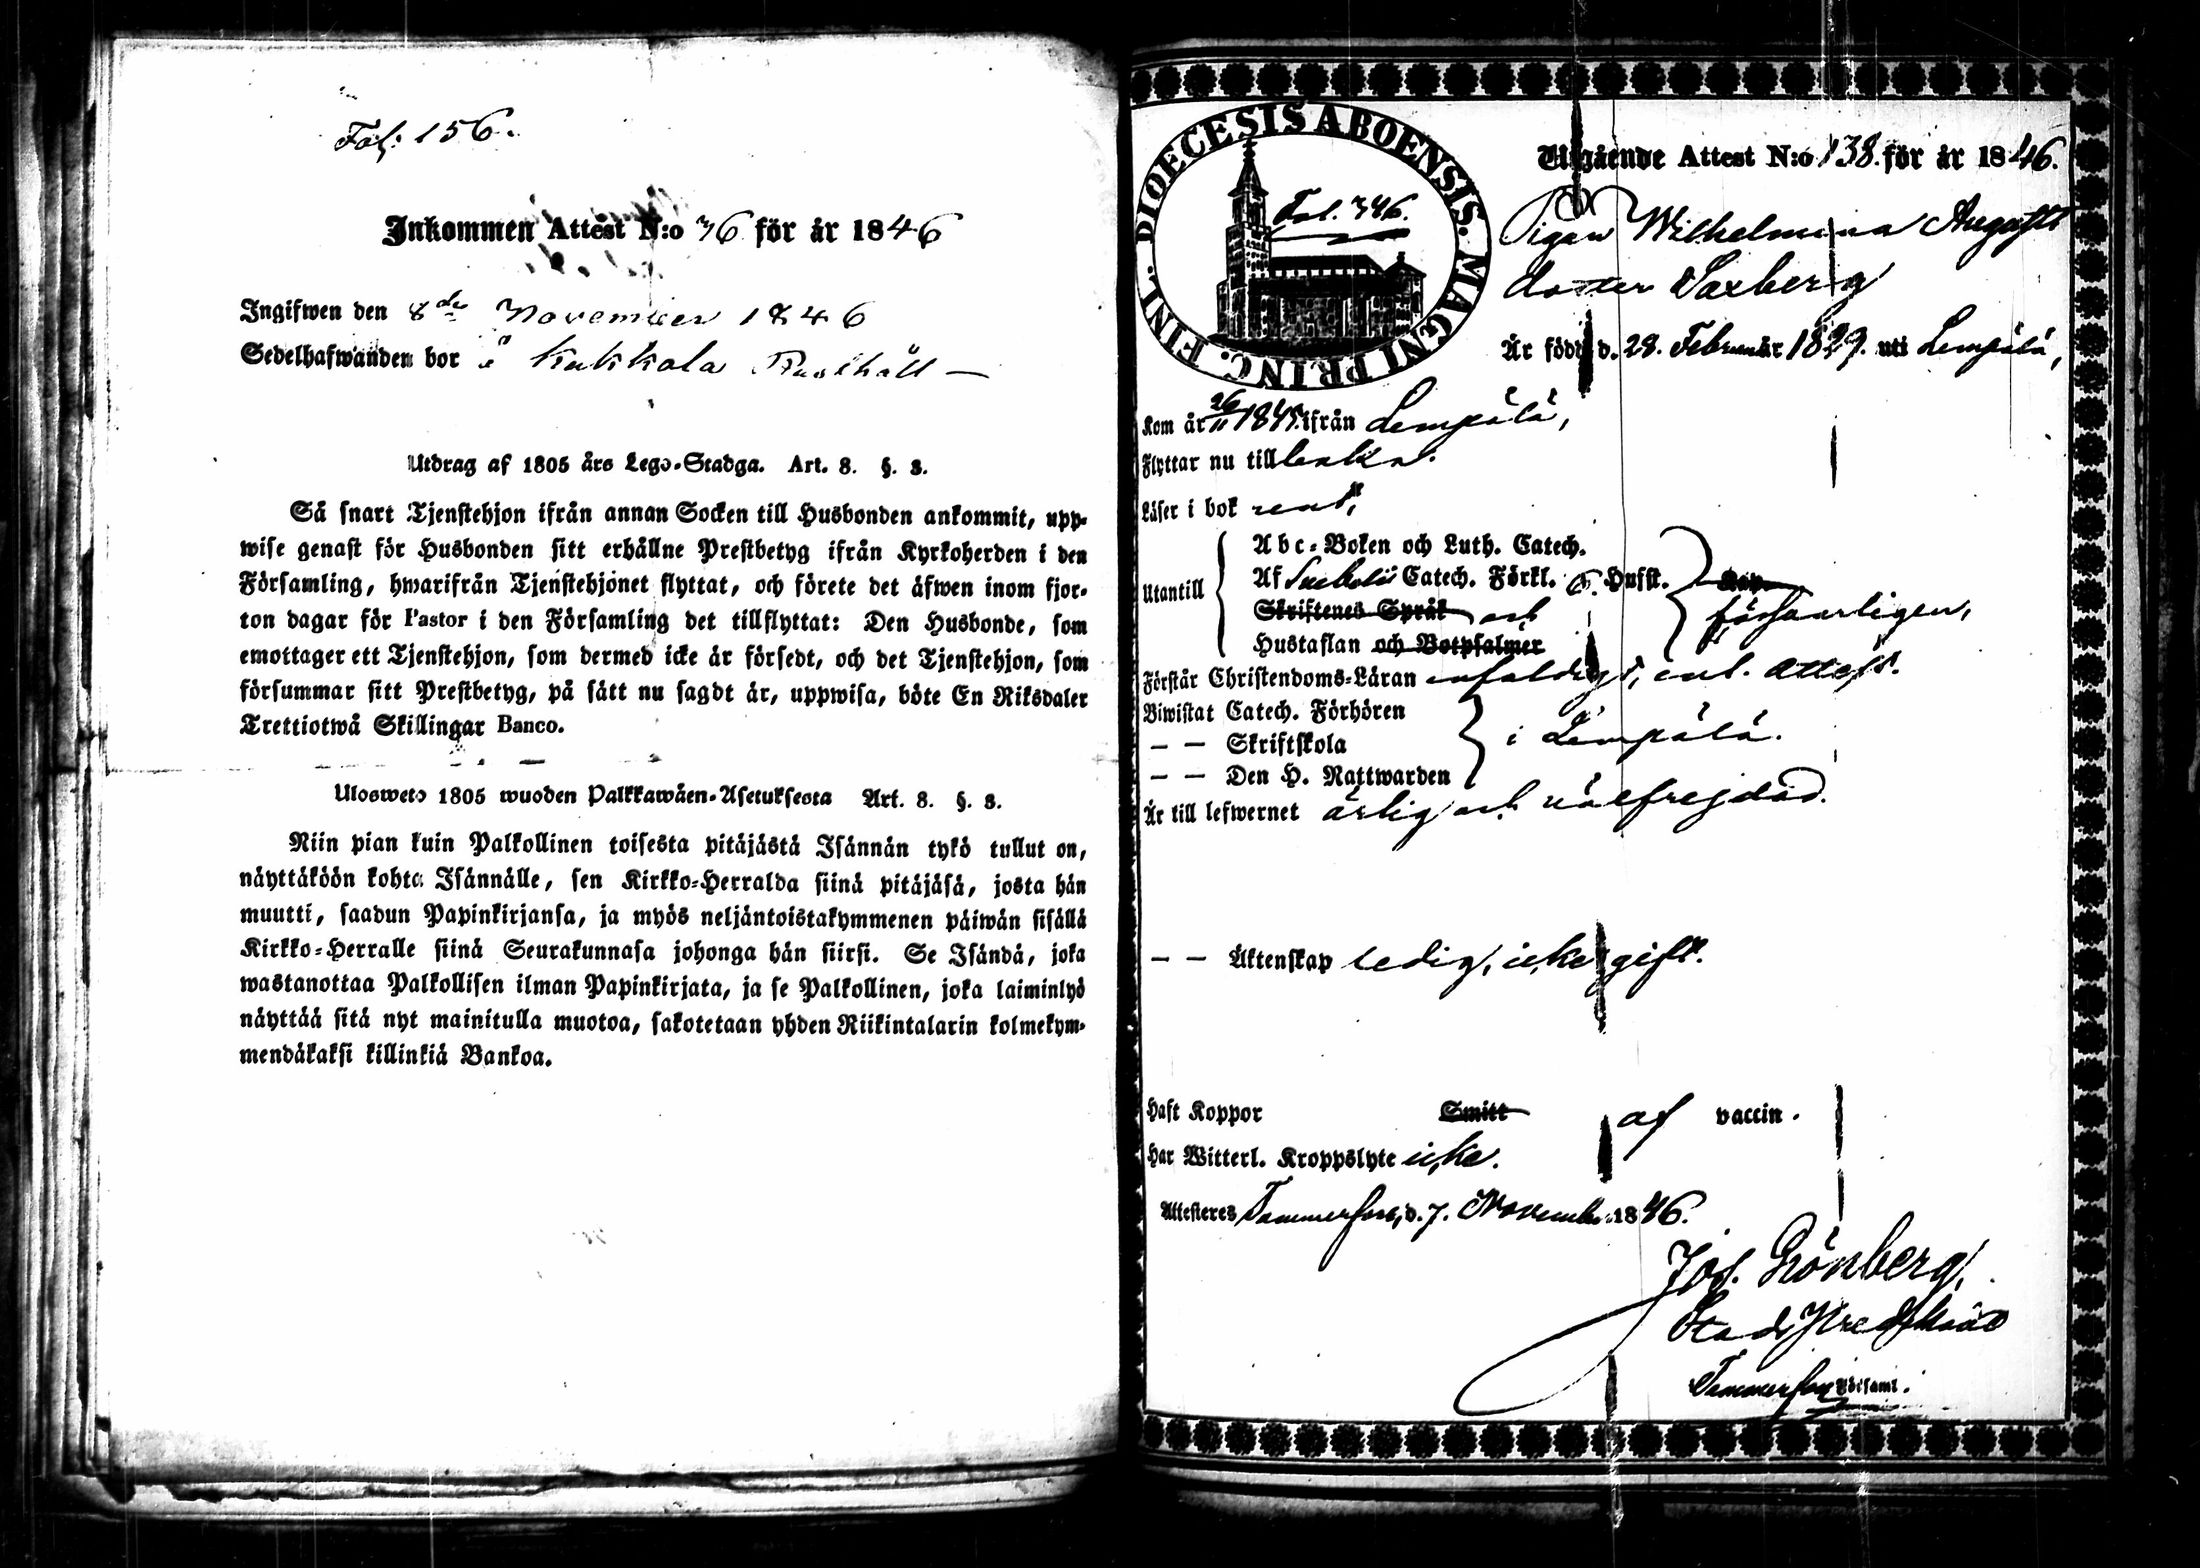 Fol: 156.
Inkommen Attest N:o 36 för år 1846
Ingifwen den 8de November 1846
Sedelhafwanden bor å Kukkola Rusthåll —
Utdrag af 1805 års Lego-Stadga. Art. 8. §. 3.
Så snart Tjenstehjon ifrån annan Socken till Husbonden ankommit, upp-
wise genast för Husbonden sitt erhållne Prestbetyg ifrån Kyrkoherden i den
Församling, hwarifrån Tjenstehjonet flyttat, och förete det äfwen inom fjor-
ton dagar för Pastor i den Församling det tillflyttat: Den Husbonde, som
emottager ett Tjenstehjon, som dermed icke är försedt, och det Tjenstehjon, som
försummar sitt Prestbetyg, på sätt nu sagdt är, uppwisa, böte En Riksdaler
Trettiotwå Skillingar Banco.
Ulosweto 1805 wuoden Palkkawäen-Asetuksesta Art. 8. §. 3.
Niin pian kuin Palkollinen toisesta pitäjästä Isännän tykö tullut on,
näyttäköön kohta Isännälle, sen Kirkko-Herralda siinä pitäjäsä, josta hän
muutti, saadun Papinkirjansa, ja myös neljäntoistakymmenen päiwän sisällä
Kirkko-Herralle siinä Seurakunnasa johonga hän siirsi. Se Isändä, joka
wastanottaa Palkollisen ilman Papinkirjata, ja se Palkollinen, joka laiminlyö
näyttää sitä nyt mainitulla muotoa, sakotetaan yhden Riikintalarin kolmekym-
mendäkaksi killinkiä Bankoa.
DIOECESIS ABOENSIS. MAGNI PRINC. FINL.
Fol. 346.
Utgående Attest N:o 138. för år 1846.
Pigan Wilhelmina Augusts
doter Saxberg
Är född d. 28. Februar 1829. uti Lempälä,
Kom år 26/11 1845. ifrån Lempälä,
Flyttar nu till
Läser i bok rent,
Utantill
Abc-Boken och Luth. Catech.
Af Svebelii Catech. Förkl. o. Husst.
Skriftenes Språk och
Hustaflan och Botpsalmer
försvarligen,
Förstår Christendoms-Läran enfaldigt, enl. attest.
Biwistat Catech. Förhören
— — Skriftskola
— — Den H. Nattwarden
i Lempälä.
Är till lefwernet ärlig och välfrejdad.
— — Äktenskap ledig, icke gift.
Haft Koppor Smitt af vaccin.
Har Witterl. Kroppslyte icke.
Attesteres Tammerfors, d. 7. November 1846.
Jos. Grönberg,
Stads Predikant
Tammerfors Förs̈aml.